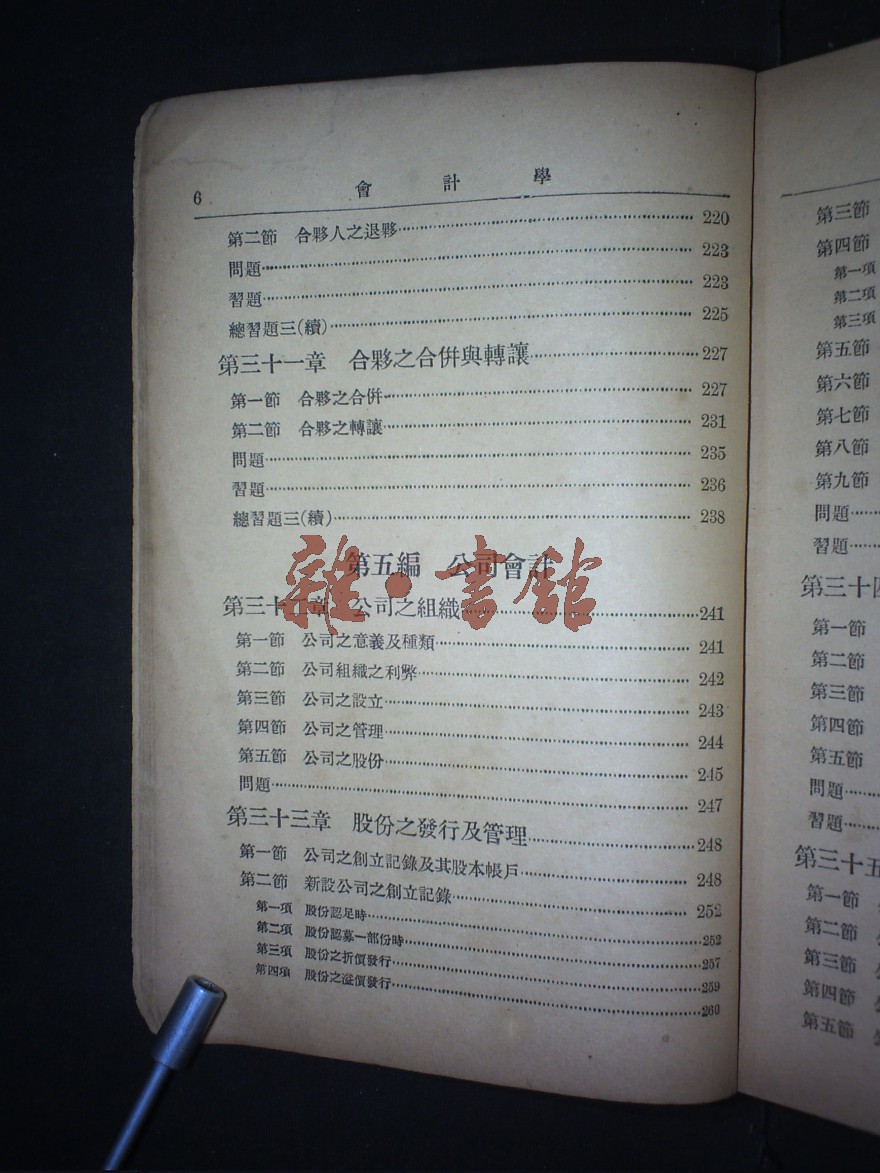 6 會計學
第二節 合夥人之退夥 220
問題 223
習題 223
總習題三(續) 225
第三十一章 合夥之合併與轉讓 227
第一節 合夥之合併 227
第二節 合夥之轉讓 231
問題 235
習題 236
總習題三(續) 238
第五編 公司會計
雜·書館
第三十二章 公司之組織 241
第一節 公司之意義及種類 241
第二節 公司組織之利弊 242
第三節 公司之設立 243
第四節 公司之管理 244
第五節 公司之股份 245
問題 247
第三十三章 股份之發行及管理 248
第一節 公司之創立記錄及其股本帳戶 248
第二節 新設公司之創立記錄 252
第一項 股份認足時 252
第二項 股份認募一部份時 257
第三項 股份之折價發行 259
第四項 股份之溢價發行 260
第三節
第四節
第一項
第二項
第三項
第五節
第六節
第七節
第八節
第九節
問題
習題
第三十四
第一節
第二節
第三節
第四節
第五節
問題
習題
第三十五
第一節
第二節
第三節
第四節
第五節